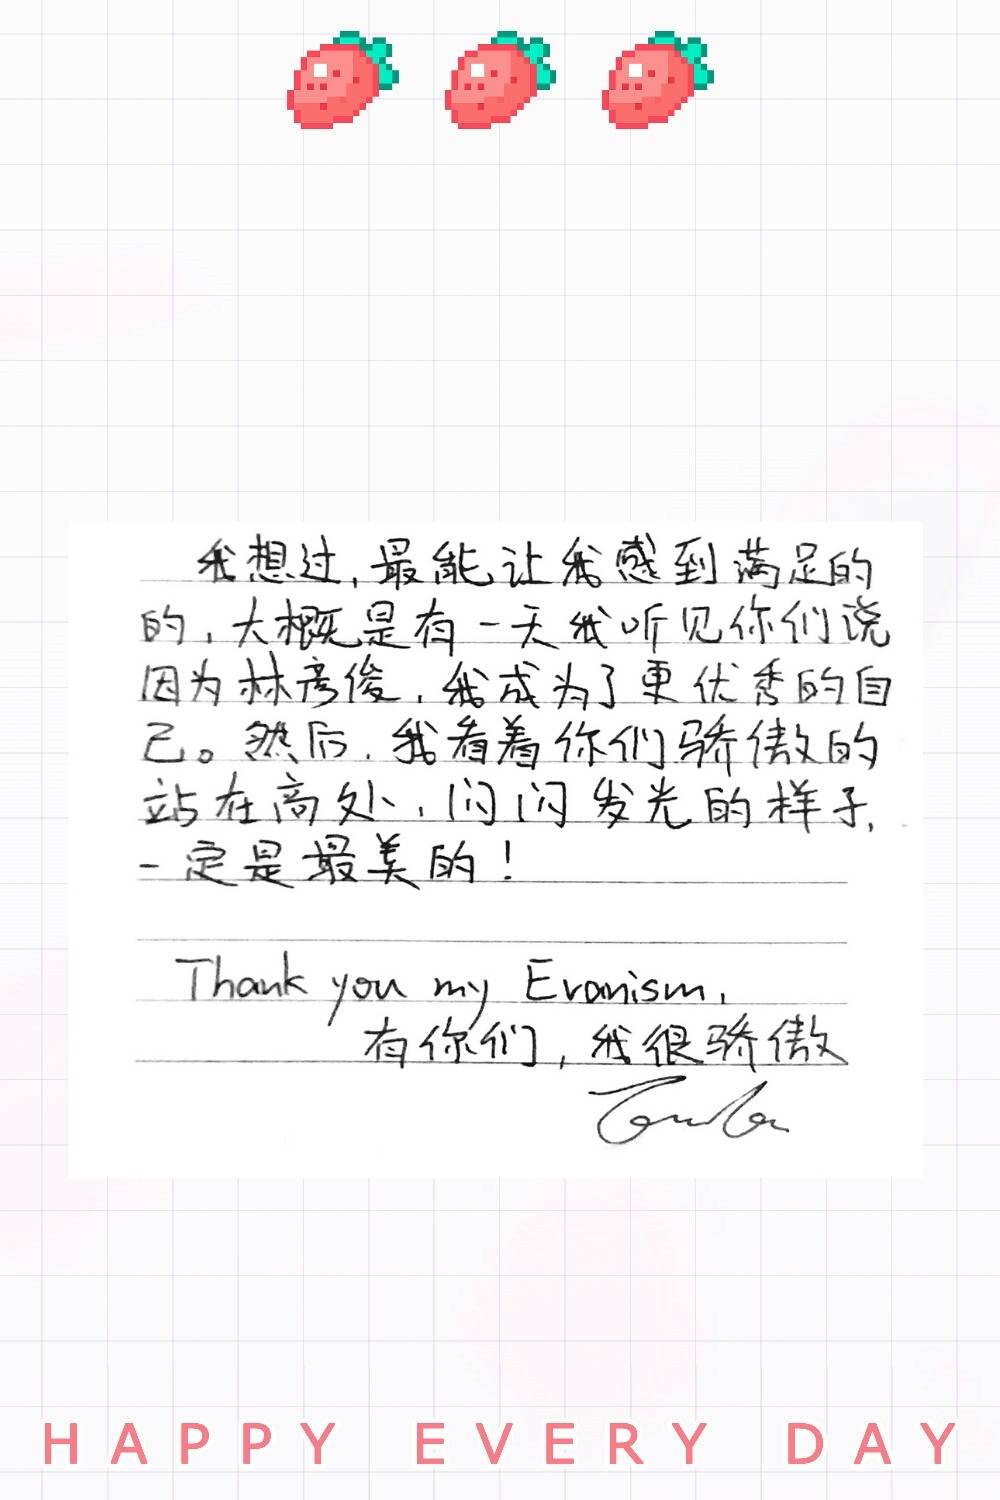 我想过,最能让我感到满足的
的,大概是有一天我听见你们说
因为林彦俊,我成为了更优秀的自
己。然后,我看着你们骄傲的
站在高处,闪闪发光的样子,
一定是最美的!
Thank you my Evanism,
有你们,我很骄傲
HAPPY EVERY DAY